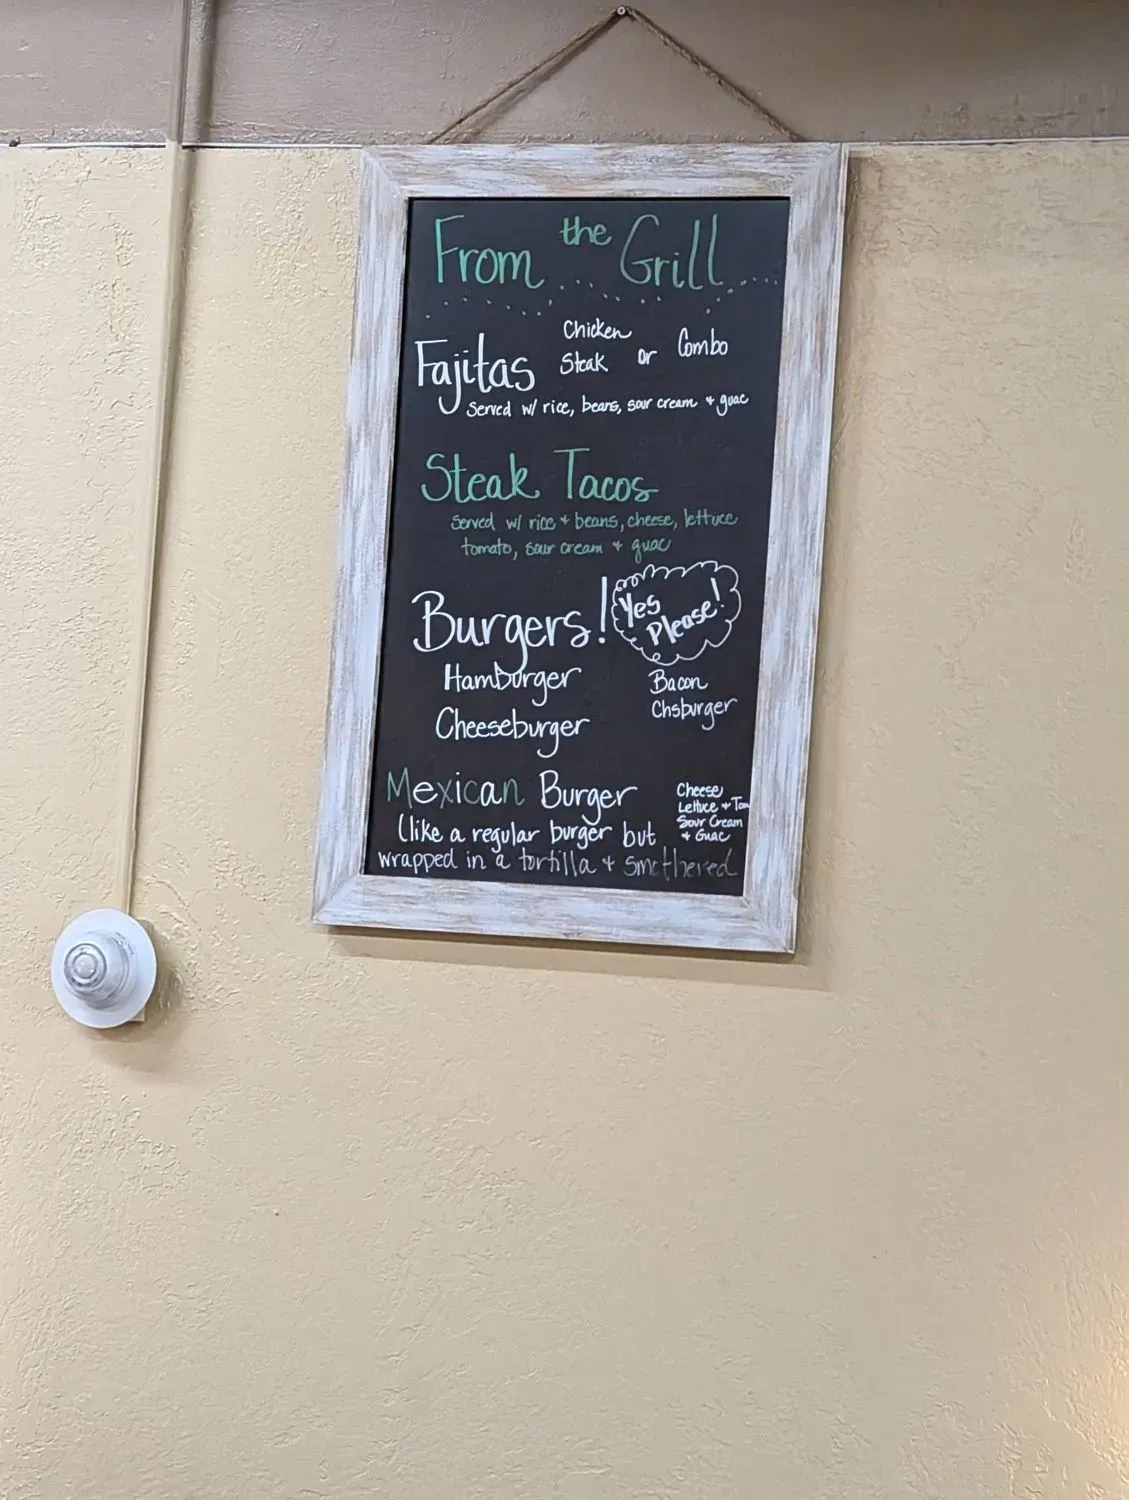 From the Grill
Fajitas
Chicken
Steak or Combo
Served w/ rice, beans, sour cream + guac
Steak Tacos
Served w/ rice + beans, cheese, lettuce
tomato, sour cream + guac
Burgers!
Yes
Please!
Hamburger
Cheeseburger
Bacon
Chsburger
Mexican Burger
(like a regular burger but
wrapped in a tortilla + smothered
Cheese
Lettuce + Tom
Sour Cream
+ Guac